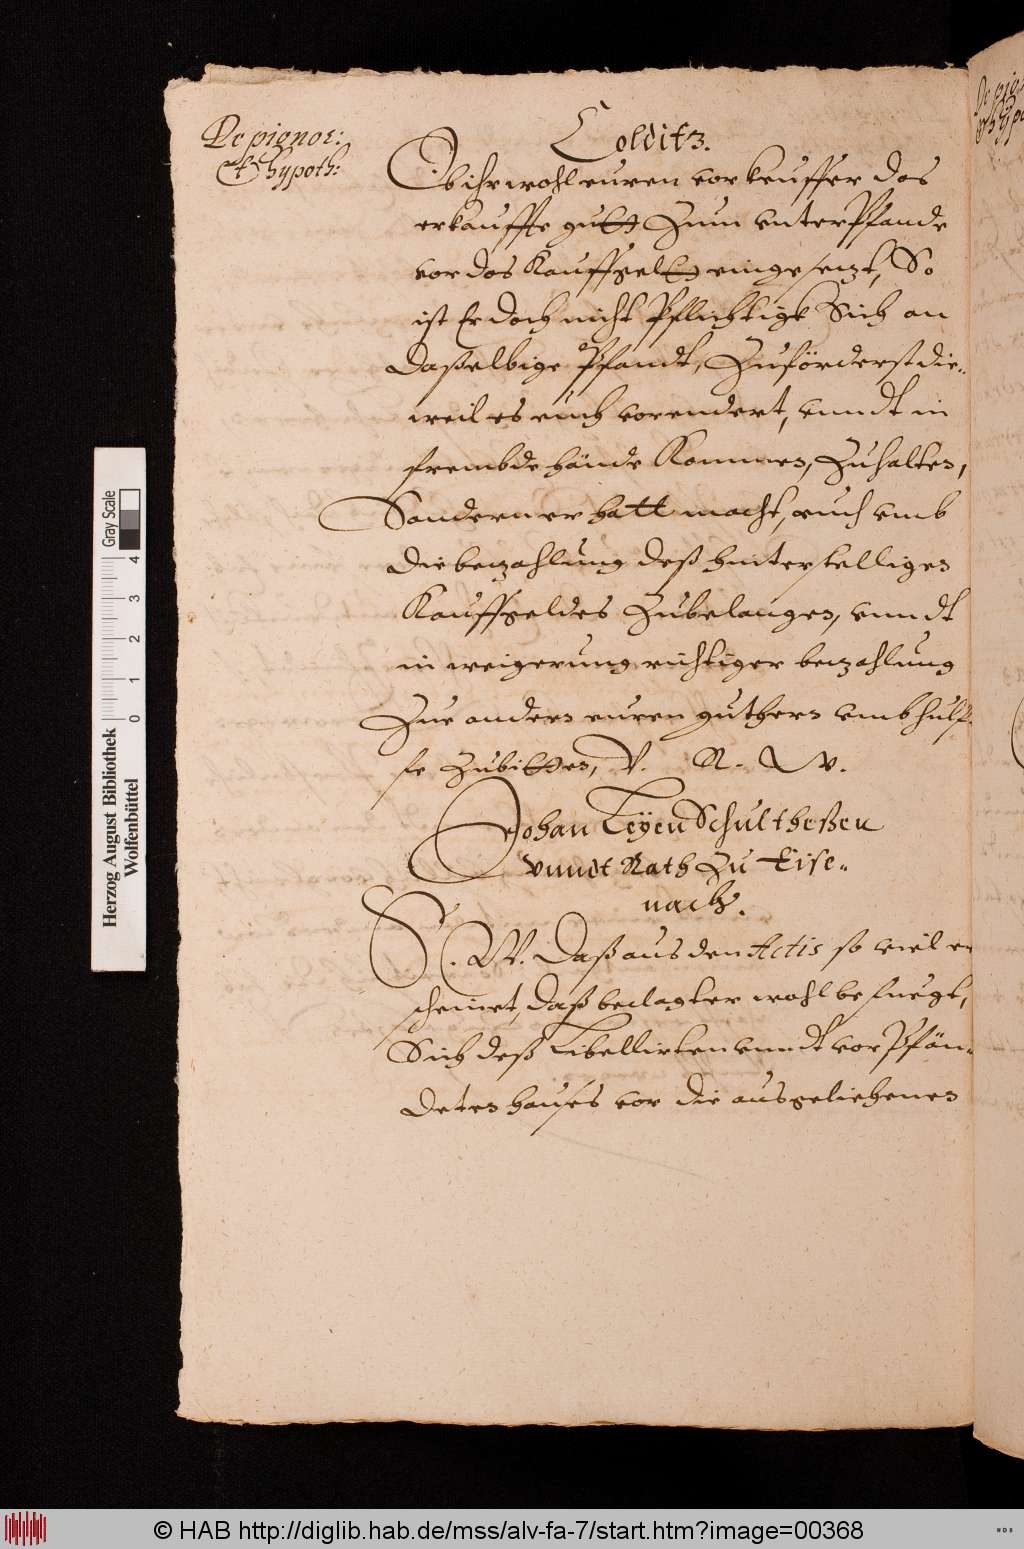 De pignor:
& hypoth:
Colditz.
Ob ihr wohl euren vorkeuffer das
erkauffte gutt zum unterPfande
vor das Kauffgeltt eingesezt, So
ist Er doch nicht Pflichtigk Sich an
daßelbige Pfandt, Zuförderst die=
weil es euch vorendert, unndt in
frembde hände Kommen, Zuhalten,
Sondern er hatt macht, euch umb
die bezahlung deß hinterstelligen
Kauffgeldes Zubelangen, unndt
in weigerung richtiger bezahlung
Zue andern euren guthern umb hulf
fe Zubitten, V. R. W.
Johan Leÿen Schultheßen
vnndt Rath Zu Eise=
nach.
H. W. Daß aus den Actis so viel er
scheinet, daß beclagter wohl befuegt,
Sich deß Libellirten unndt vorPfän=
deten hauses vor die ausgeliehenen
De pig
& hypo
Herzog August Bibliothek
Wolfenbüttel
0 1 2 3 4
Gray Scale
© HAB http://diglib.hab.de/mss/alv-fa-7/start.htm?image=00368